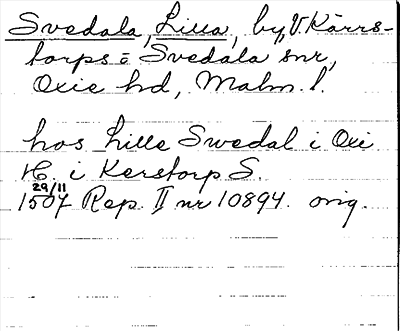 Svedala, Lilla, by, V. Kärrs-
torps = Svedala snr,
Oxie hd, Malm. l.
hos Lille Swedal i Oxi
H. i Kerstorp S.
29/11
1507 Rep. II nr 10894. orig.